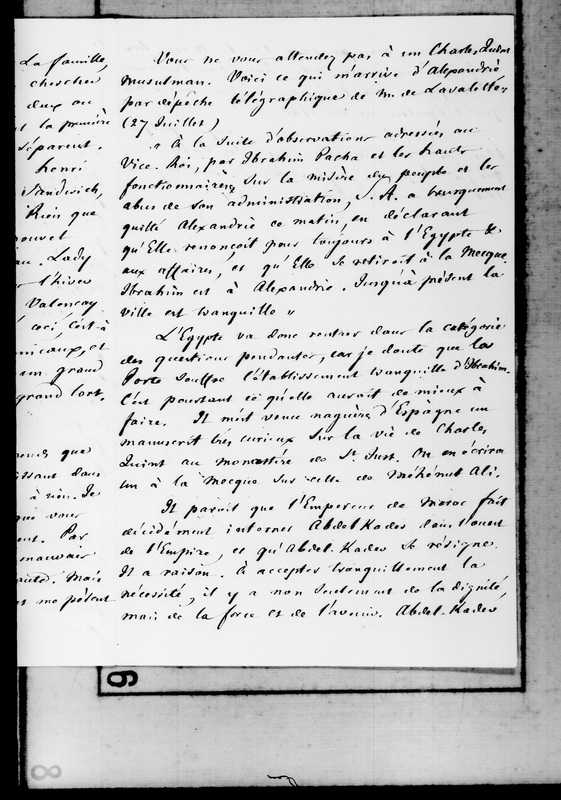 La famille,
chercher
deux ou
t la première
séparent.
henri
Sandwich,
Rien que
nouvel
au. Lady
l'hiver
Valençay
ceci, c'est à
nicaux, et
un grand
grand tort.
que
issant dans
à rien. Je
qui vous
ent. Par
mauvais
aité. Mais
me pèsent
Vous ne vous attendez pas à un Charles, Quint
musulman. Voici ce qui m'arrive d'Alexandrie
par dépêche télégraphique de m. de Lavalette
(27 Juillet)
" à la suite d'observations adressées au
Vice-Roi, par Ibrahim Pacha et les hauts
fonctionnaires, sur la misère du peuple et les
abus de son administration, S. A. a brusquement
quitté Alexandrie ce matin, en déclarant
qu'Elle renonçoit pour toujours à l'Egypte &
aux affaires, et qu'Elle se retiroit à la Mecque.
Ibrahim est à Alexandrie. Jusqu'à présent la
ville est tranquille "
L'Egypte va donc rentrer dans la catégorie
des questions pendantes, car je doute que la
Porte souffre l'établissement tranquille d'Ibrahim.
C'est pourtant ce qu'elle auroit de mieux à
faire. Il m'est venu naguères d'Espagne un
manuscrit très curieux sur la vie de Charles
Quint au monastère de St Just. On en écrira
un à la Mecque sur celle de Méhémet Ali.
Il paroit que l'Empereur de Maroc fait
décidément interner Abdel-Kader dans l'ouest
de l'Empire, et qu'Abdel-Kader se résigne.
Il a raison. à accepter tranquillement la
nécessité, il y a non seulement de la dignité,
mais de la force et de l'avenir. Abdel-Kader
9
8